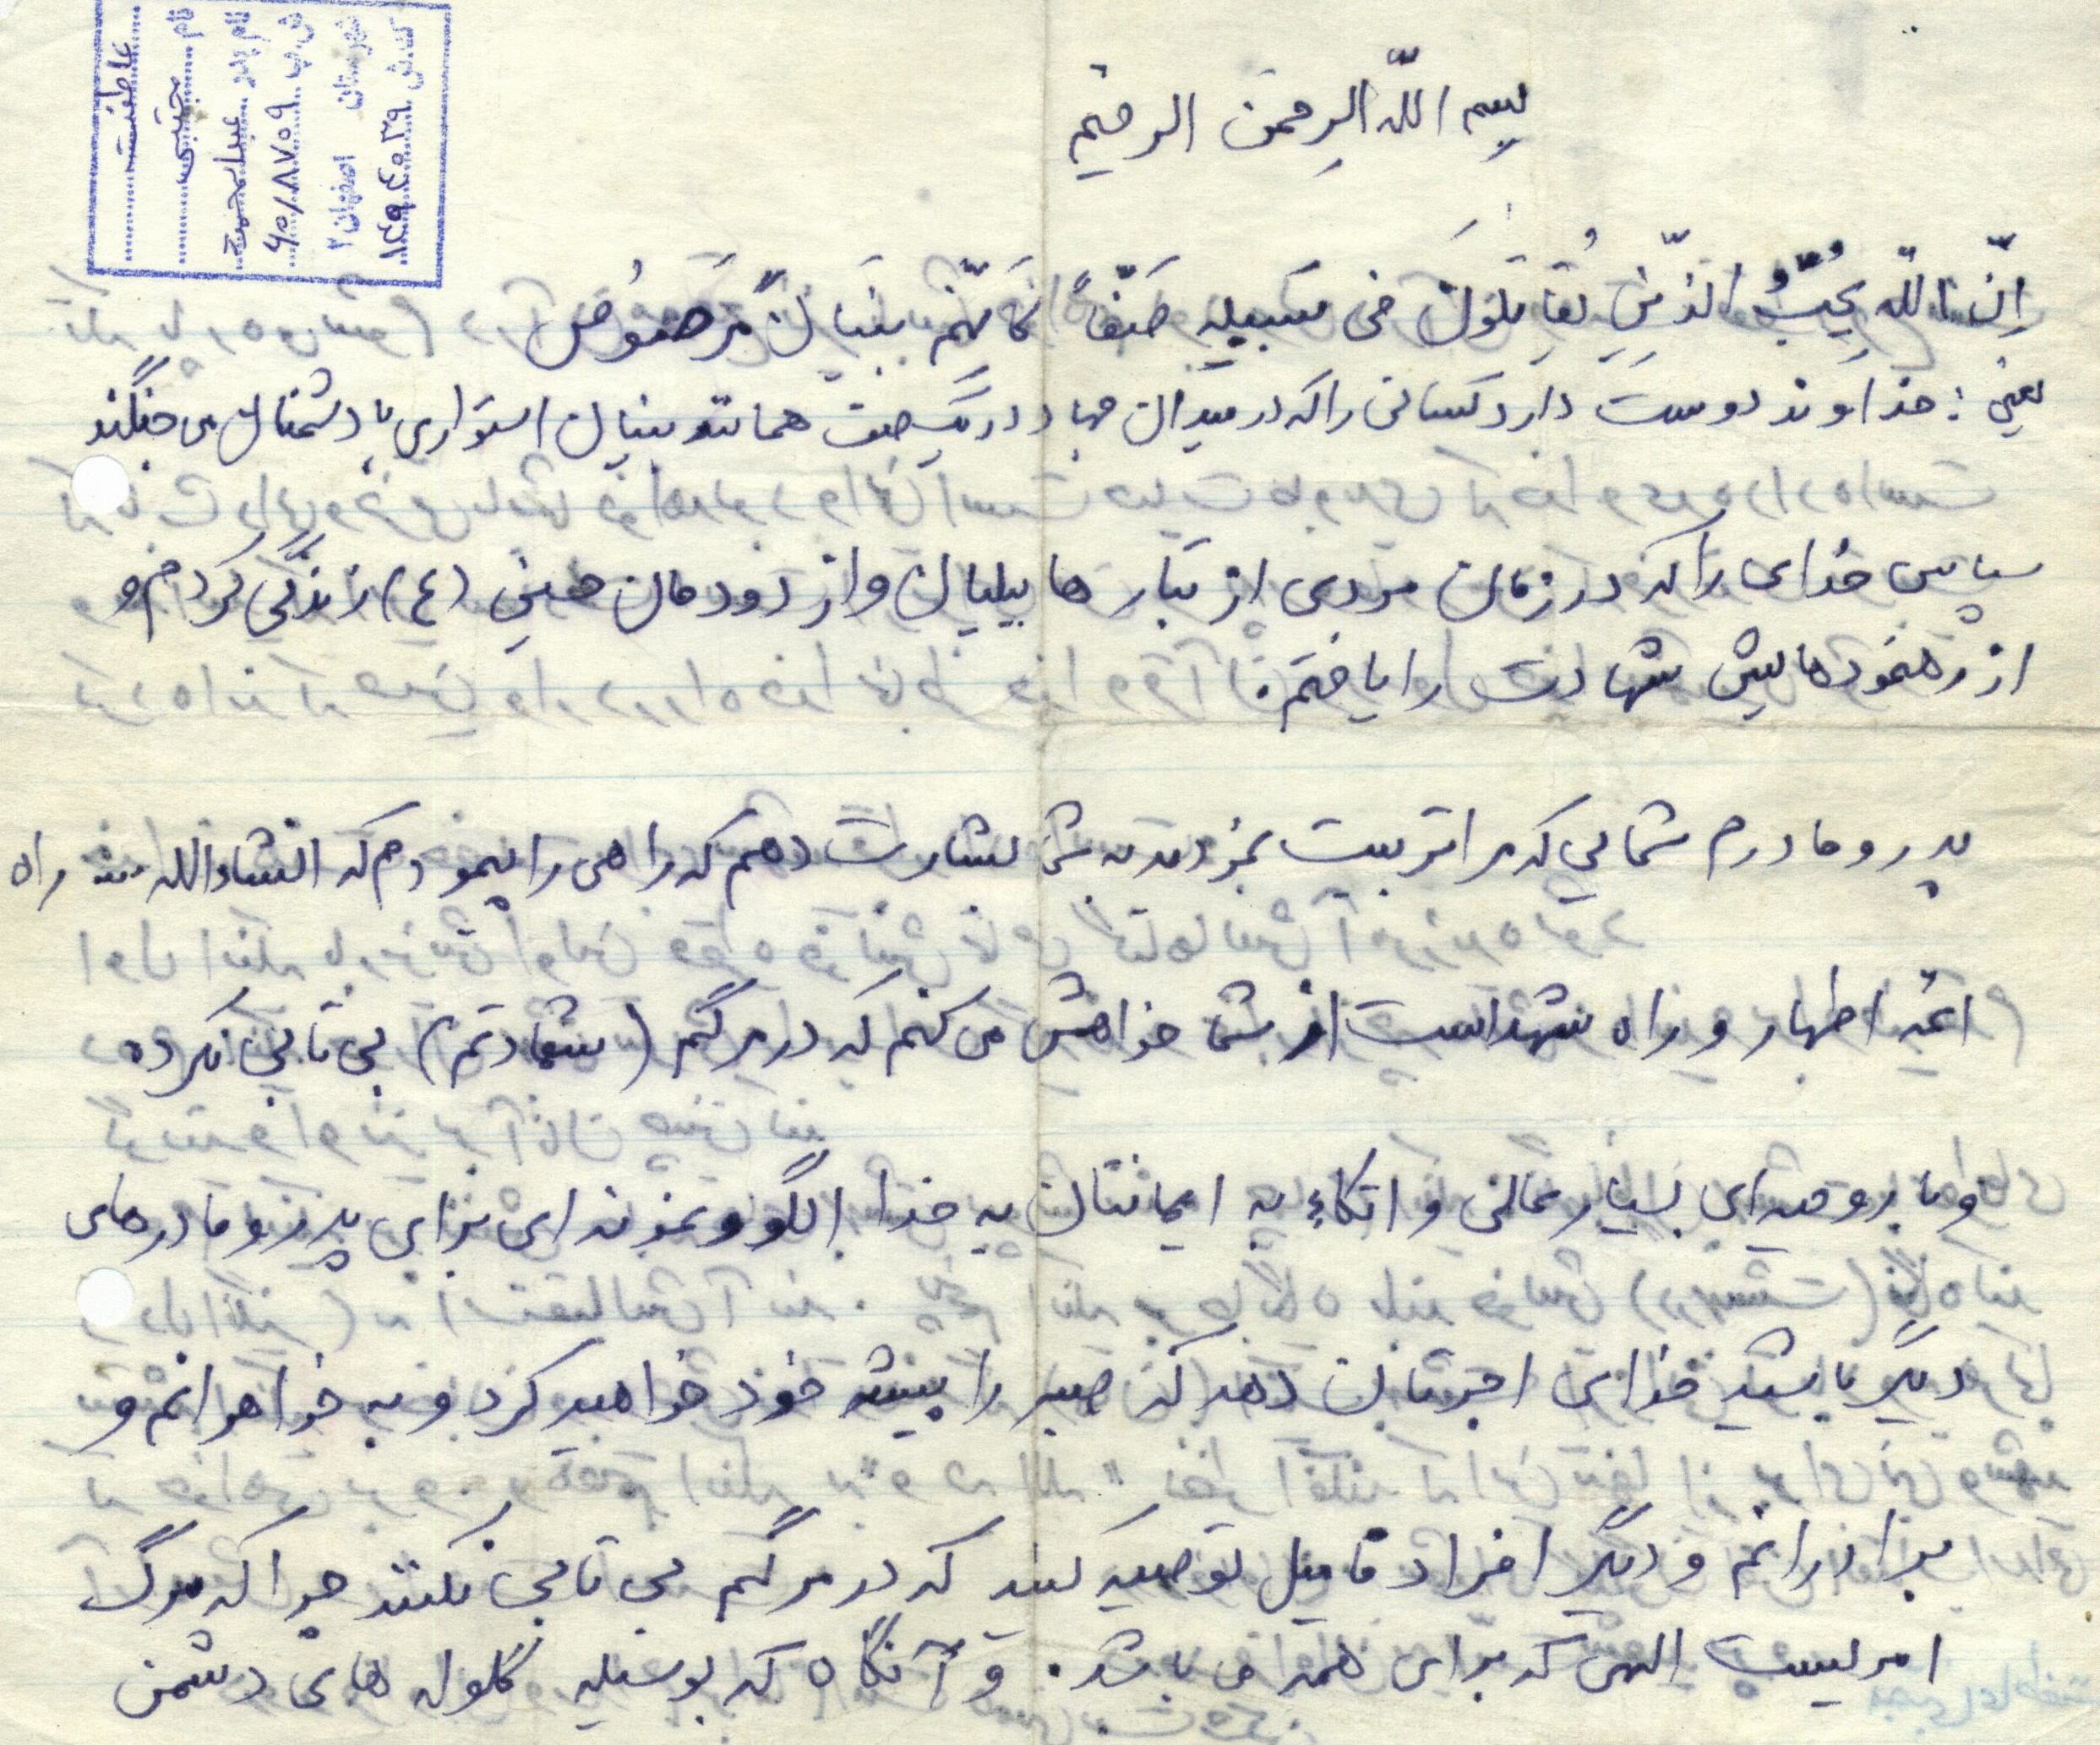 عاطفت
نام مجتبی
نام پدر عبدالحمید
ش.پ ۶۵/۸۸۷۵۹
شهرستان اصفهان ۲
ک.ش ۱۲۴۹۴۰۳۹
بسم الله الرحمن الرحیم
اِنّ الله یُحِبُّ الذّینِ یُقاتِلوُنَ فی سَبیِلِهِ صَفّاً کَاَنَّهُم بُنیانٌ مَرصوُص
یعنی : خداوند دوست دارد کسانی را که در میدان جهاد در یک صف همانند بنیان استواری با دشمنان می جنگند
سپاس خُدای را که در زمان مردی از تبار هابیلیان و از دودمان حسین (ع) زندگی کردم و
از رهنمودهایش شهادت را یافتم.
پدر و مادرم شمایی که مرا تربیت نمودید به شما بشارت دهم که راهی را پیمودم که انشاءالله راه
ائمه اطهار و راه شهداست از شما خواهش می کنم که در مرگم (شهادتم) بی تابی نکرده
و با روحیه ای بسیار عالی و اتکاء به ایمانتان به خدا الگو و نمونه ای برای پدر و مادرهای
دیگر باشید خدای اجرتان دهد که صبر را پیشه خود خواهید کرد و به خواهرانم و
برادرانم و دیگر افراد فامیل توصیه کنید که در مرگم بی تابی نکنند چرا که مرگ
امریست الهی که برای همه می باشد. و آنگاه که بوسیله گلوله های دشمن